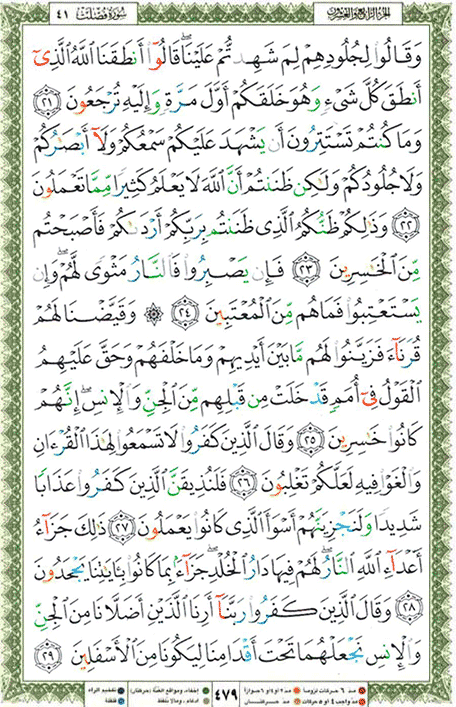 الجزء الرابع والعشرون سورة فصلت ٤١
وَقَالُوا۟ لِجُلُودِهِمْ لِمَ شَهِدتُّمْ عَلَيْنَا ۖ قَالُوٓا۟ أَنطَقَنَا ٱللَّهُ ٱلَّذِىٓ
أَنطَقَ كُلَّ شَىْءٍ وَهُوَ خَلَقَكُمْ أَوَّلَ مَرَّةٍ وَإِلَيْهِ تُرْجَعُونَ ٢١
وَمَا كُنتُمْ تَسْتَتِرُونَ أَن يَشْهَدَ عَلَيْكُمْ سَمْعُكُمْ وَلَآ أَبْصَٰرُكُمْ
وَلَا جُلُودُكُمْ وَلَٰكِن ظَنَنتُمْ أَنَّ ٱللَّهَ لَا يَعْلَمُ كَثِيرًا مِّمَّا تَعْمَلُونَ
٢٢ وَذَٰلِكُمْ ظَنُّكُمُ ٱلَّذِى ظَنَنتُم بِرَبِّكُمْ أَرْدَىٰكُمْ فَأَصْبَحْتُم
مِّنَ ٱلْخَٰسِرِينَ ٢٣ فَإِن يَصْبِرُوا۟ فَٱلنَّارُ مَثْوًى لَّهُمْ ۖ وَإِن
يَسْتَعْتِبُوا۟ فَمَا هُم مِّنَ ٱلْمُعْتَبِينَ ٢٤ ۞ وَقَيَّضْنَا لَهُمْ
قُرَنَآءَ فَزَيَّنُوا۟ لَهُم مَّا بَيْنَ أَيْدِيهِمْ وَمَا خَلْفَهُمْ وَحَقَّ عَلَيْهِمُ
ٱلْقَوْلُ فِىٓ أُمَمٍ قَدْ خَلَتْ مِن قَبْلِهِم مِّنَ ٱلْجِنِّ وَٱلْإِنسِ ۖ إِنَّهُمْ
كَانُوا۟ خَٰسِرِينَ ٢٥ وَقَالَ ٱلَّذِينَ كَفَرُوا۟ لَا تَسْمَعُوا۟ لِهَٰذَا ٱلْقُرْءَانِ
وَٱلْغَوْا۟ فِيهِ لَعَلَّكُمْ تَغْلِبُونَ ٢٦ فَلَنُذِيقَنَّ ٱلَّذِينَ كَفَرُوا۟ عَذَابًا
شَدِيدًا وَلَنَجْزِيَنَّهُمْ أَسْوَأَ ٱلَّذِى كَانُوا۟ يَعْمَلُونَ ٢٧ ذَٰلِكَ جَزَآءُ
أَعْدَآءِ ٱللَّهِ ٱلنَّارُ ۖ لَهُمْ فِيهَا دَارُ ٱلْخُلْدِ ۖ جَزَآءًۢ بِمَا كَانُوا۟ بِـَٔايَٰتِنَا يَجْحَدُونَ
٢٨ وَقَالَ ٱلَّذِينَ كَفَرُوا۟ رَبَّنَآ أَرِنَا ٱلَّذَيْنِ أَضَلَّانَا مِنَ ٱلْجِنِّ
وَٱلْإِنسِ نَجْعَلْهُمَا تَحْتَ أَقْدَامِنَا لِيَكُونَا مِنَ ٱلْأَسْفَلِينَ ٢٩
مد ٦ حركات لزوماً مد ٢ أو ٤ أو ٦ جوازاً إخفاء، ومواقع الغنّة (حركتان) تفخيم الراء
مد واجب ٤ أو ٥ حركات مد حركتان ٤٧٩ إدغام، وما لا يُلفظ قلقلة